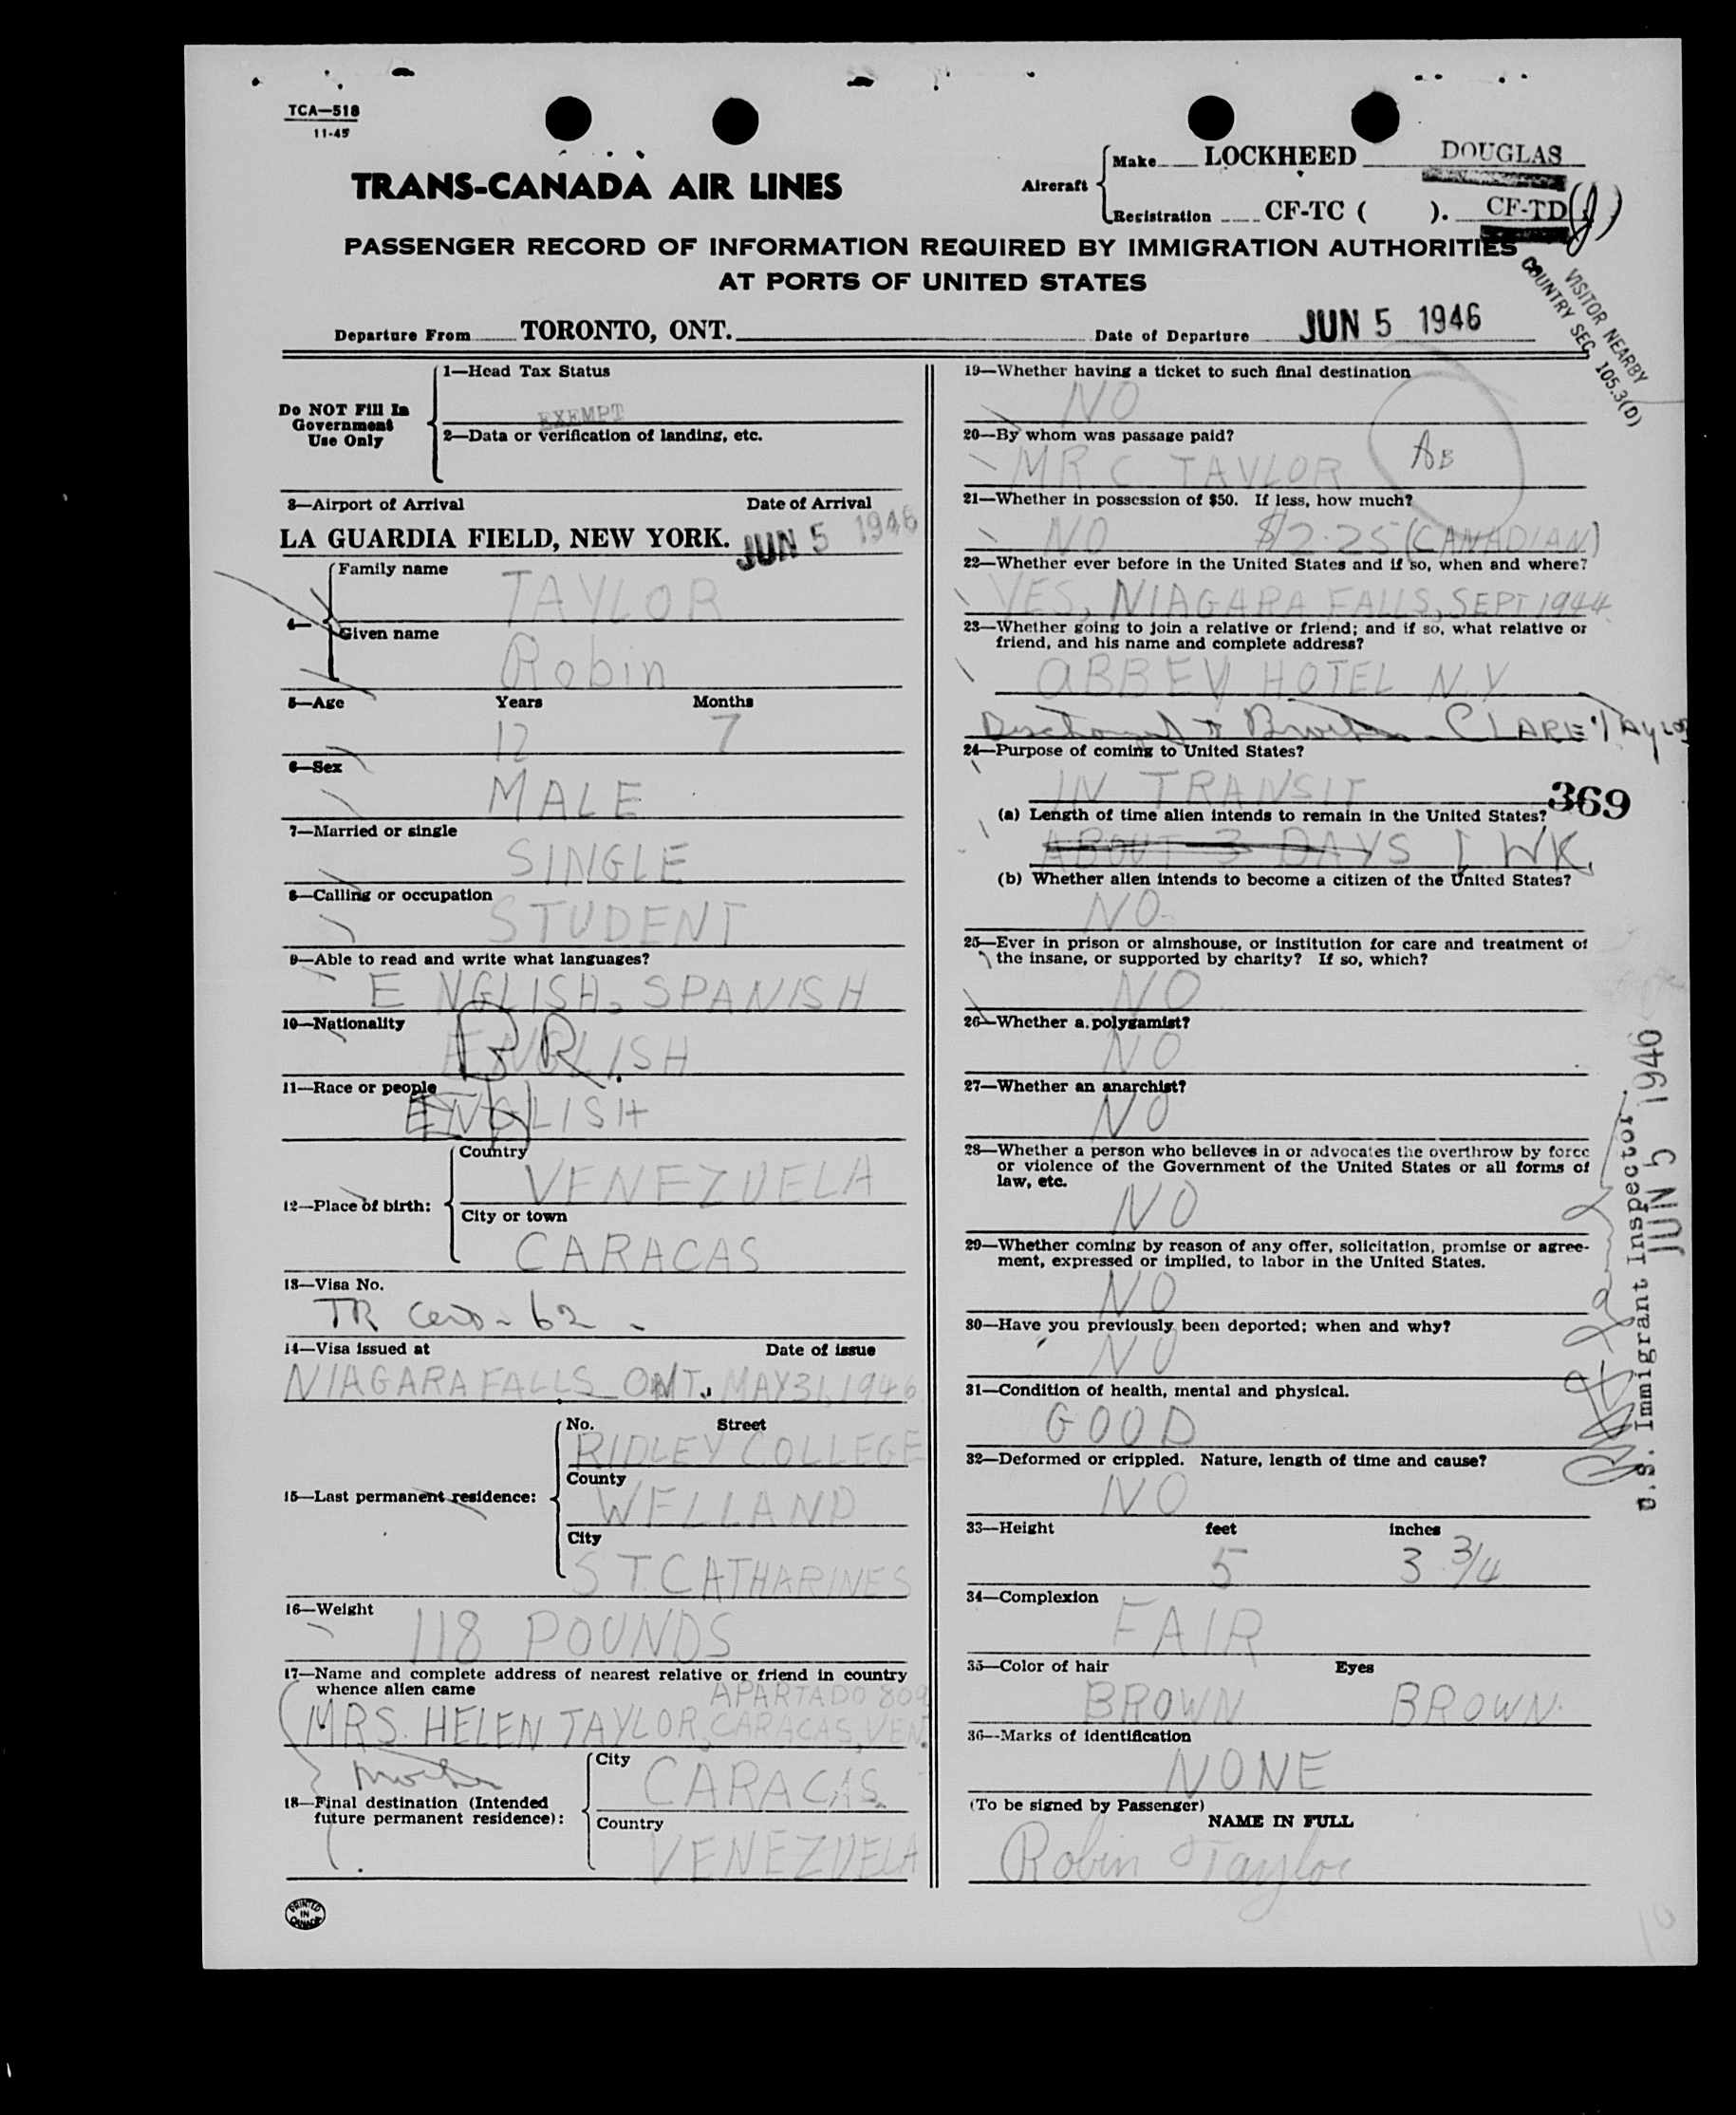 TCA—518
11-45
TRANS-CANADA AIR LINES
Aircraft
Make LOCKHEED DOUGLAS
Registration CF-TC ( ). CF-TD (J)
PASSENGER RECORD OF INFORMATION REQUIRED BY IMMIGRATION AUTHORITIES
AT PORTS OF UNITED STATES
VISITOR NEARBY
COUNTRY SEC. 105.3(D)
Departure From TORONTO, ONT. Date of Departure JUN 5 1946
Do NOT Fill In
Government
Use Only
1—Head Tax Status
EXEMPT
2—Data or verification of landing, etc.
3—Airport of Arrival Date of Arrival
LA GUARDIA FIELD, NEW YORK. JUN 5 1946
4—
Family name
TAYLOR
Given name
Robin
5—Age Years Months
12 7
6—Sex
MALE
7—Married or single
SINGLE
8—Calling or occupation
STUDENT
9—Able to read and write what languages?
ENGLISH, SPANISH
10—Nationality
ENGLISH BR.
11—Race or people
ENGLISH
12—Place of birth:
Country
VENEZUELA
City or town
CARACAS
13—Visa No.
TR 62
14—Visa issued at Date of issue
NIAGARA FALLS ONT. MAY 31, 1946
15—Last permanent residence:
No. Street
RIDLEY COLLEGE
County
WELLAND
City
ST. CATHARINES
16—Weight
118 POUNDS
17—Name and complete address of nearest relative or friend in country
whence alien came
APARTADO 809
MRS. HELEN TAYLOR, CARACAS, VEN.
Mother
18—Final destination (Intended
future permanent residence):
City
CARACAS
Country
VENEZUELA
PRINTED
IN
CANADA
19—Whether having a ticket to such final destination
NO
20—By whom was passage paid?
MR C TAYLOR
AB
21—Whether in possession of $50. If less, how much?
NO $12.25 (CANADIAN)
22—Whether ever before in the United States and if so, when and where?
YES, NIAGARA FALLS, SEPT 1944
23—Whether going to join a relative or friend; and if so, what relative or
friend, and his name and complete address?
ABBEY HOTEL N.Y
to Brother - CLARE Taylor
24—Purpose of coming to United States?
IN TRANSIT
369
(a) Length of time alien intends to remain in the United States?
ABOUT 3 DAYS 1 WK.
(b) Whether alien intends to become a citizen of the United States?
NO
25—Ever in prison or almshouse, or institution for care and treatment of
the insane, or supported by charity? If so, which?
NO
26—Whether a polygamist?
NO
27—Whether an anarchist?
NO
28—Whether a person who believes in or advocates the overthrow by force
or violence of the Government of the United States or all forms of
law, etc.
NO
29—Whether coming by reason of any offer, solicitation, promise or agree-
ment, expressed or implied, to labor in the United States.
NO
30—Have you previously been deported; when and why?
NO
31—Condition of health, mental and physical.
GOOD
32—Deformed or crippled. Nature, length of time and cause?
NO
33—Height feet inches
5 3 3/4
34—Complexion
FAIR
35—Color of hair Eyes
BROWN BROWN.
36—Marks of identification
NONE
(To be signed by Passenger)
NAME IN FULL
Robin Taylor
U.S. Immigrant Inspector.
JUN 5 1946